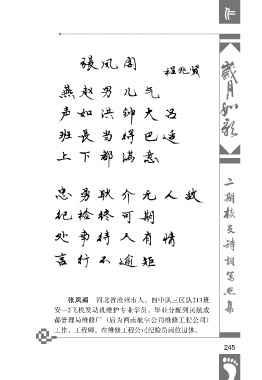 張凤阁
程兆贤
燕赵男儿气
声如洪钟大吕
班长当得巴适
上下都满意
忠勇耿介无人敌
纪检终可期
处事待人有情
言行不逾矩
张凤阁 河北省沧州市人。四中队三区队213班
安—2飞机发动机维护专业学员。毕业分配到民航成
都管理局维修厂(后为西南航空公司维修工程公司)
工作,工程师。在维修工程公司纪检员岗位退休。
岁月如歌
二期校友诗词写照集
245